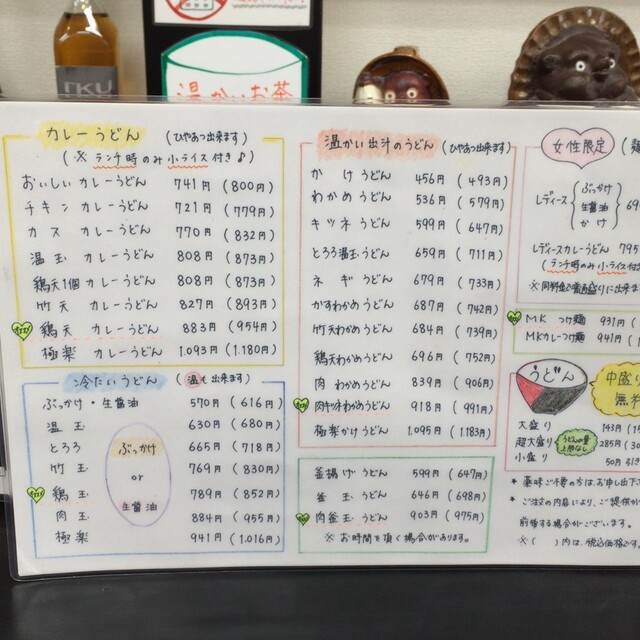 温かいお茶
カレーうどん (ひやあつ出来ます)
(※ランチ時のみ小ライス付き♪)
おいしいカレーうどん 741円 (800円)
チキン カレーうどん 721円 (779円)
カス カレーうどん 770円 (832円)
温玉 カレーうどん 808円 (873円)
鶏天1個カレーうどん 808円 (873円)
竹天 カレーうどん 827円 (893円)
鶏天 カレーうどん 883円 (954円)
極楽 カレーうどん 1.093円 (1.180円)
冷たいうどん (温も出来ます)
ぶっかけ・生醤油 570円 (616円)
温玉 630円 (680円)
とろろ 665円 (718円)
竹玉 769円 (830円)
鶏玉 789円 (852円)
肉玉 884円 (955円)
極楽 941円 (1.016円)
ぶっかけ
or
生醤油
温かい出汁のうどん (ひやあつ出来ます)
かけうどん 456円 (493円)
わかめうどん 536円 (579円)
キツネうどん 599円 (647円)
とろろ温玉うどん 659円 (711円)
ネギうどん 679円 (733円)
かすわかめうどん 687円 (742円)
竹天わかめうどん 684円 (739円)
鶏天わかめうどん 696円 (752円)
肉わかめうどん 839円 (906円)
肉キツネわかめうどん 918円 (991円)
極楽かけうどん 1.095円 (1.183円)
釜揚げうどん 599円 (647円)
釜玉うどん 646円 (698円)
肉釜玉うどん 903円 (975円)
※お時間を頂く場合があります。
女性限定
レディース ぶっかけ 生醤油 かけ
レディースカレーうどん 795
(ランチ時のみ小ライス付
MK つけ麺 931円
MKカレーつけ麺 941円
うどん
中盛り
無料
大盛り 143円
超大盛り 285円
小盛り 50円引き
うどんの量上限なし
* 薬味ご不要の方は、お申し出下さ
* ご注文の内容により、ご提供が
前後する場合がございます。
※( )内は、税込価格です。